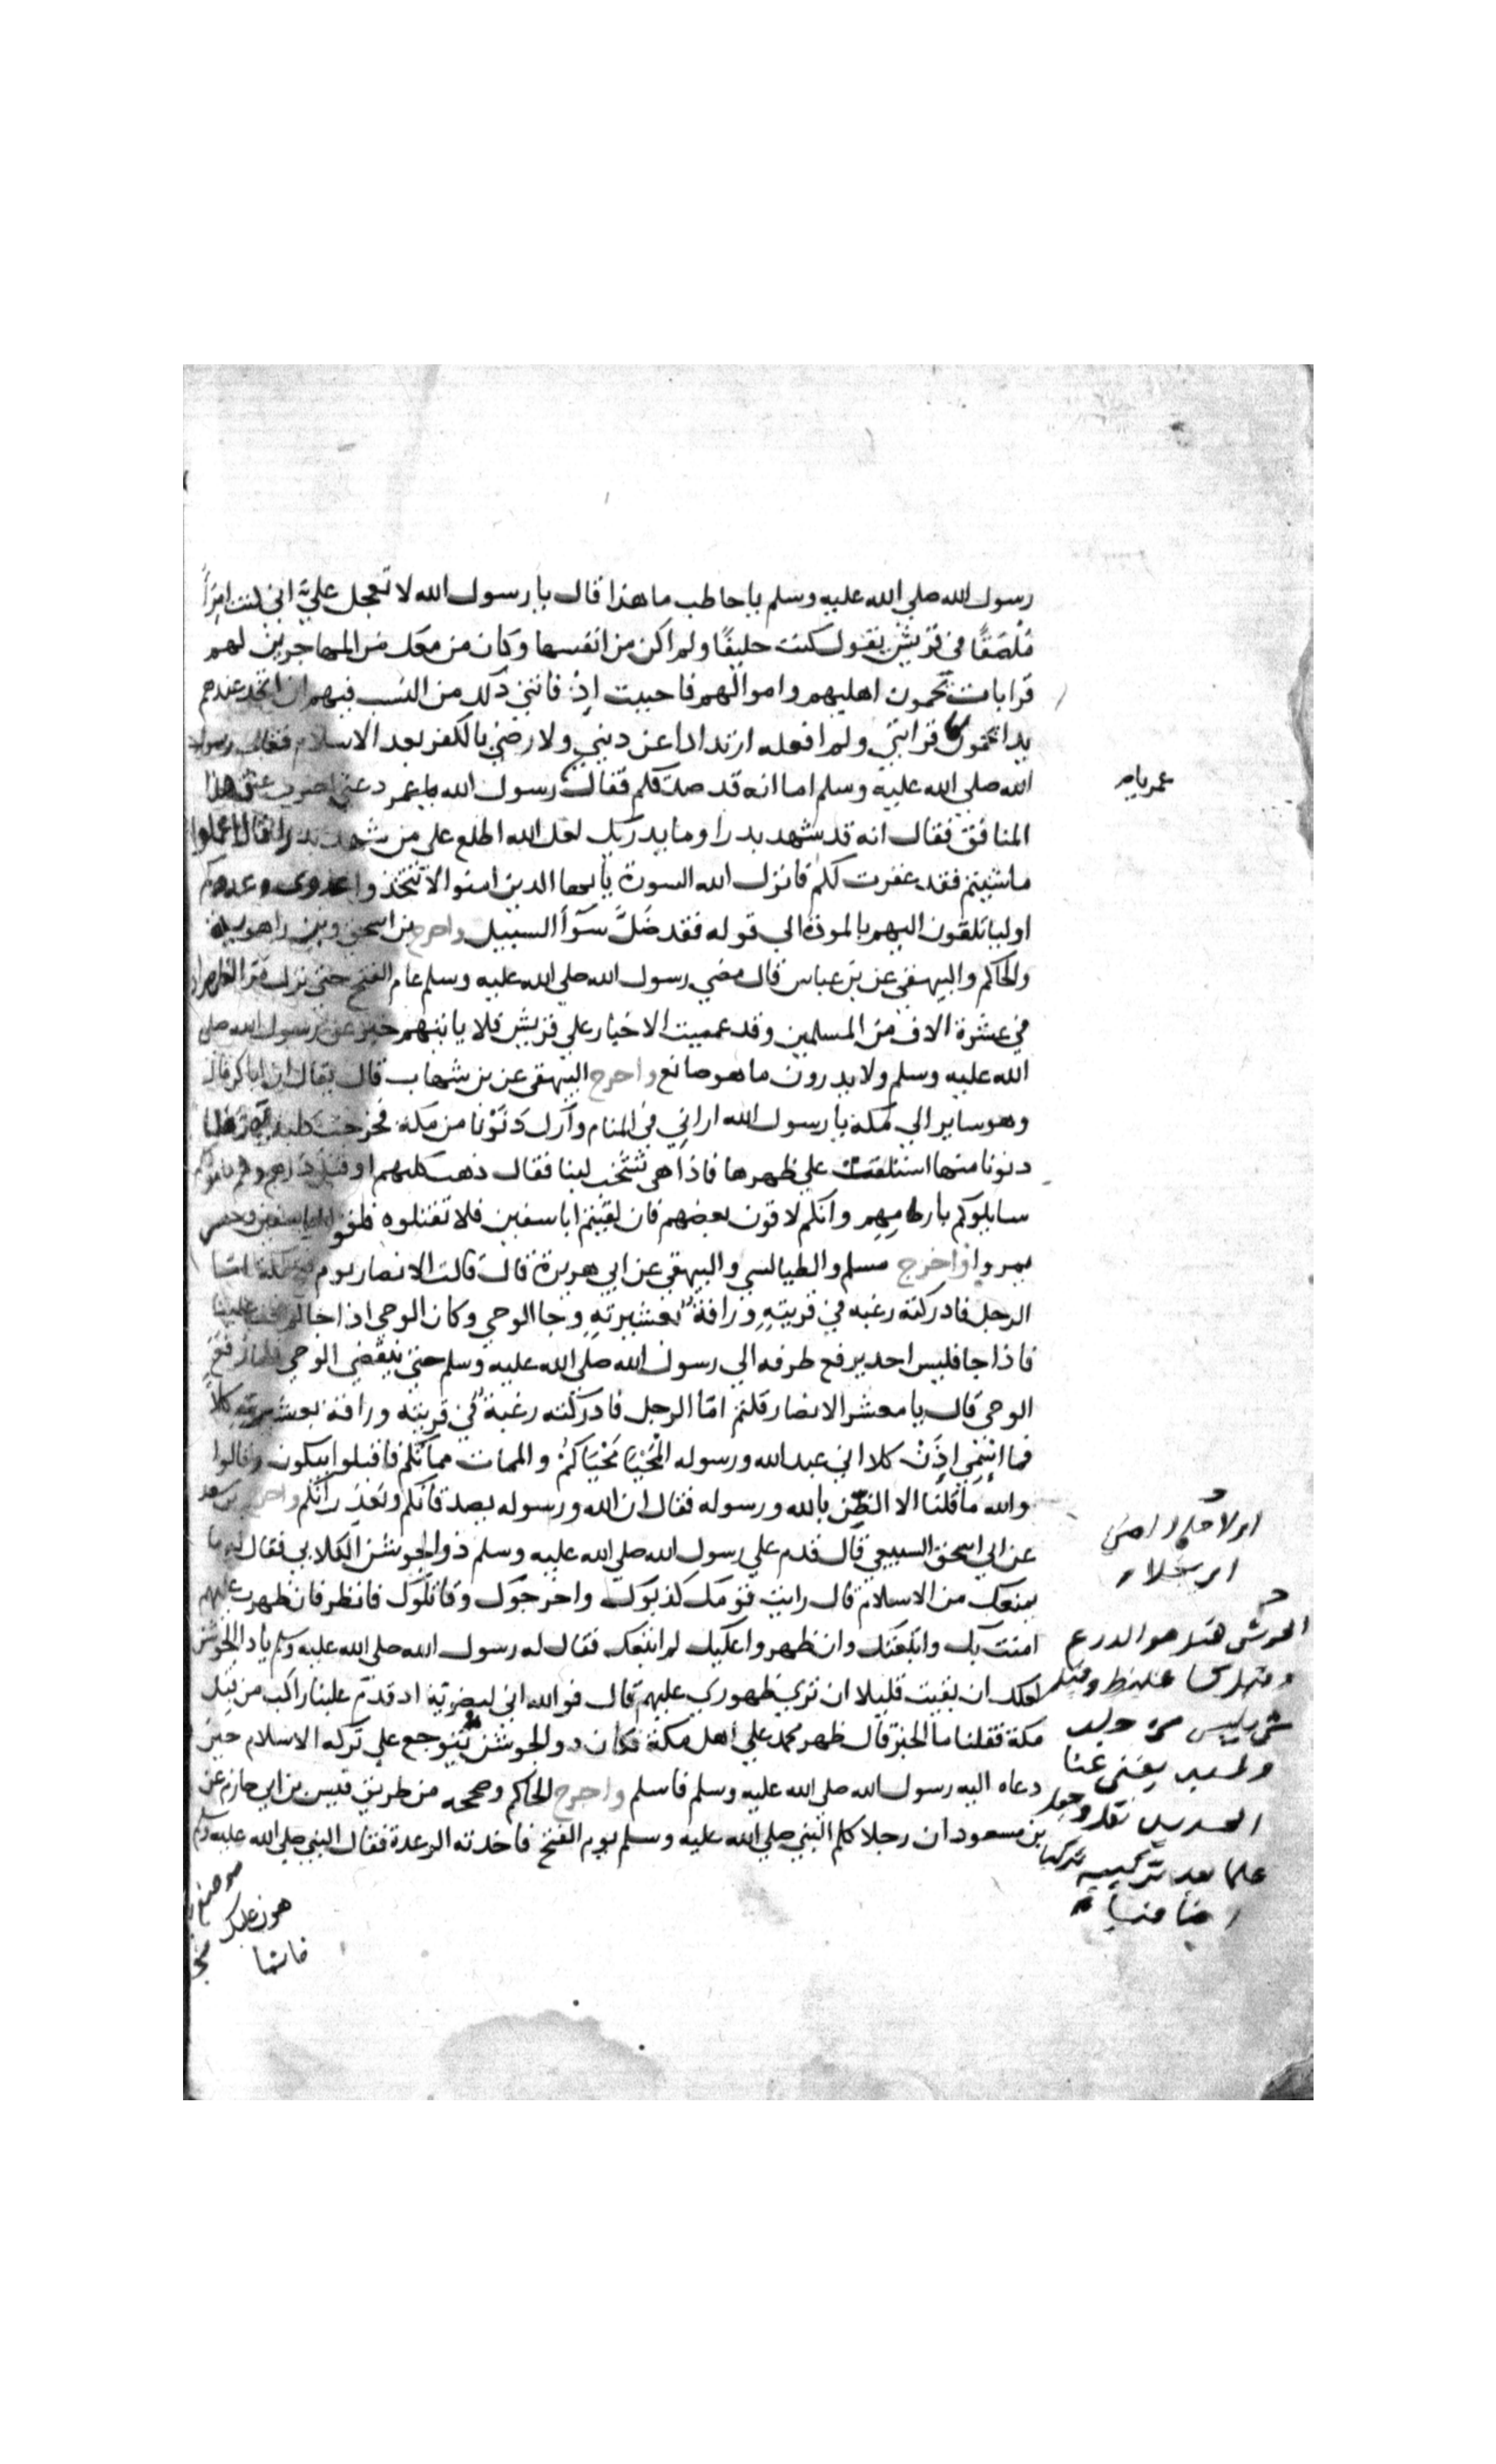 رسول الله صلي الله عليه وسلم يا حاطب ما هذا قال يا رسول الله لا تعجل علي اني كنت امرأ
مُلصَقًا في قريش يقول كنت حليفًا ولم اكن من انفسها وكان من معك من المهاجرين لهم
قرابات يحمون اهليهم واموالهم فاحببت اذ فاتني ذلك من النسب فيهم ان اتخذ عندهم
يدا يحمون بها قرابتي ولم افعله ارتدادا عن ديني ولا رضي بالكفر بعد الاسلام فقال رسول
الله صلي الله عليه وسلم اما انه قد صدقكم فقال رسول الله يا عمر دعني اضرب عنق هذا
عمر يا ر
المنافق فقال انه قد شهد بدرا وما يدريك لعل الله اطلع على من شهد بدرا فقال اعملوا
ما شيتم فقد غفرت لكم فانزل الله السورة يا يها الذين امنوا لا تتخذوا عدوى وعدوكم
اوليا تلقون اليهم بالمودة الي قوله فقد ضَلَّ سَوآأ السبيل واخرج بن اسحق وبن راهويه
والحاكم والبيهقي عن بن عباس قال مضي رسول الله صلي الله عليه وسلم عام الفتح حتى نزل مر الظهران
في عشرة الاف من المسلمين وقد عميت الاخبار علي قريش فلا ياتيهم خبر عن رسول الله صلي
الله عليه وسلم ولا يدرون ما هو صانع واخرج البيهقي عن بن شهاب قال يقال ان ابا بكر قال
وهو ساير الي مكة يا رسول الله اراني في المنام وآراك دَنَوْنا من مكة فخرجت كلبة تهر فلما
دنونا منها استلقت علي ظهرها فاذا هي تشخب لبنا فقال ذهب كلبهم واقبل درهم وهم
سايلوكم بارحامهم وانكم لاقون بعضهم فان لقيتم ابا سفين فلا تقتلوه فلقوا ابا سفين وحكيم
بمر واخرج مسلم والطيالسي والبيهقي عن ابي هريرة قال قالت الانصار يوم فتح مكة اما
الرجل فادركته رغبه في قريتهِ ورافة بعشيرتهِ وجا الوحي وكان الوحي اذا جا لم يخف علينا
فاذا جا فليس احد يرفع طرفه الي رسول الله صلي الله عليه وسلم حتي ينقضي الوحي فلما رفع
الوحي قال يا معشر الانصار قلتم امّا الرجل فادركته رغبة في قريته ورافة بعشيرته كلا
فما اسمي اذن كلا اني عبد الله ورسوله المحيا محياكم والممات مماتكم فاقبلوا يبكون وقالوا
والله ما قلنا الا الظن بالله ورسوله فقال ان الله ورسوله يصدقانكم ويعذرانكم واخرج بن سعد
عن ابي اسحق السبيعي قال قدم علي رسول الله صلي الله عليه وسلم ذو الجوشن الكلابي فقال له ما
يمنعك من الاسلام قال رايت قومك كذبوك واخرجوك وقاتلوك فانظر فان ظهرت عليهم
امنت بك واتبعتك وان ظهروا عليك لم اتبعك فقال له رسول الله صلي الله عليه وسلم يا ذا الجوشن
لعلك ان بقيت قليلا ان تري ظهوري عليهم قال فوالله اني لبضرية اذ قدم علينا راكب من قبل
مكة فقلنا ما الخبر قال ظهر محمد علي اهل مكة فكان ذو الجوشن يتوجع علي تركه الاسلام حين
دعاه اليه رسول الله صلي الله عليه وسلم فاسلم واخرج الحاكم وصححه من طريق قيس بن ابي حازم عن
بن مسعود ان رجلا كلم النبي صلي الله عليه وسلم يوم الفتح فاخذته الرعدة فقال النبي صلي الله عليه وسلم
هون عليك
فانما
الجوشن هو الدرع